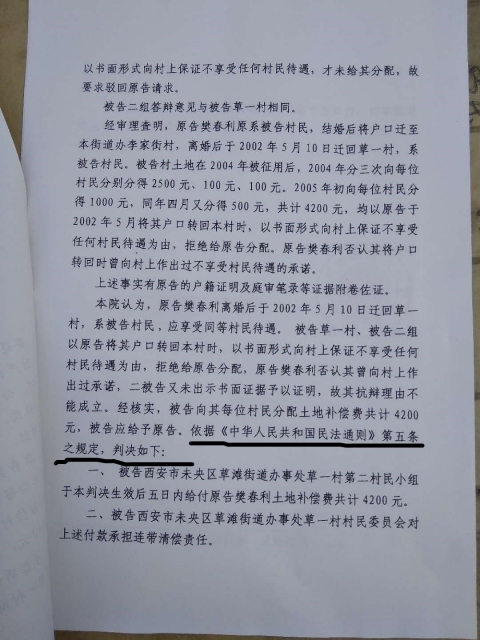 以书面形式向村上保证不享受任何村民待遇，才未给其分配，故
要求驳回原告请求。
被告二组答辩意见与被告草一村相同。
经审理查明，原告樊春利原系被告村民，结婚后将户口迁至
本街道办李家街村，离婚后于 2002 年 5 月 10 日迁回草一村，系
被告村民。被告村土地在 2004 年被征用后，2004 年分三次向每位
村民分别分得 2500 元、100 元、100 元。2005 年初向每位村民分
得 1000 元，同年四月又分得 500 元，共计 4200 元，均以原告于
2002 年 5 月将其户口转回本村时，以书面形式向村上保证不享受
任何村民待遇为由，拒绝给原告分配。原告樊春利否认其将户口
转回时曾向村上作出过不享受村民待遇的承诺。
上述事实有原告的户籍证明及庭审笔录等证据附卷佐证。
本院认为，原告樊春利离婚后于 2002 年 5 月 10 日迁回草一
村，系被告村民，应享受同等村民待遇。 被告草一村、被告二组
以原告将其户口转回本村时，以书面形式向村上保证不享受任何
村民待遇为由，拒绝给原告分配，原告樊春利否认其曾向村上作
出过承诺，二被告又未出示书面证据予以证明，故其抗辩理由不
能成立。经核实，被告向其每位村民分配土地补偿费共计 4200
元，被告应给予原告。依据《中华人民共和国民法通则》第五条
之规定，判决如下：
一、 被告西安市未央区草滩街道办事处草一村第二村民小组
于本判决生效后五日内给付原告樊春利土地补偿费共计 4200 元。
二、被告西安市未央区草滩街道办事处草一村村民委员会对
上述付款承担连带清偿责任。